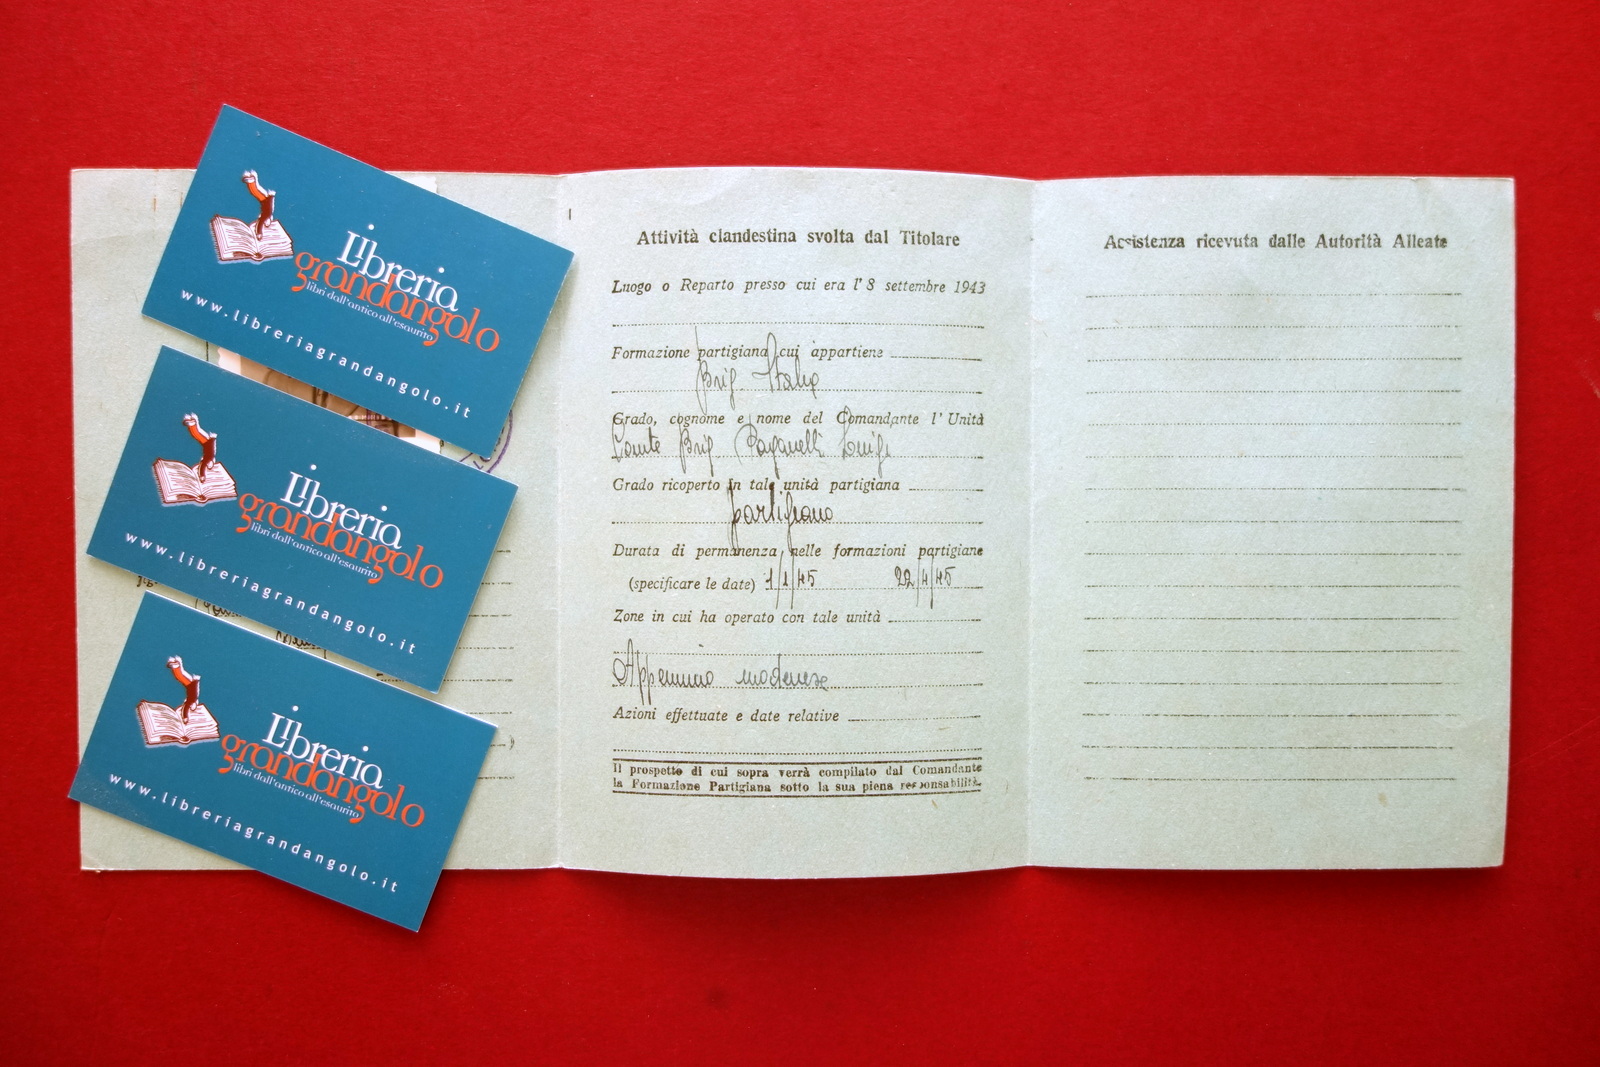 Libreria
grandangolo
libri dall'antico all'esaurito
www.libreriagrandangolo.it
Libreria
grandangolo
libri dall'antico all'esaurito
www.libreriagrandangolo.it
Libreria
grandangolo
libri dall'antico all'esaurito
www.libreriagrandangolo.it
Attività clandestina svolta dal Titolare
Luogo o Reparto presso cui era l'8 settembre 1943
Formazione partigiana cui appartiene
Brig Italia
Grado, cognome e nome del Comandante l'Unità
Comte Brig Paganelli Luigi
Grado ricoperto in tale unità partigiana
partigiano
Durata di permanenza nelle formazioni partigiane
(specificare le date) 1/1/45 22/4/45
Zone in cui ha operato con tale unità
Appennino modenese
Azioni effettuate e date relative
Il prospetto di cui sopra verrà compilato dal Comandante
la Formazione Partigiana sotto la sua piena responsabilità.
Assistenza ricevuta dalle Autorità Alleate